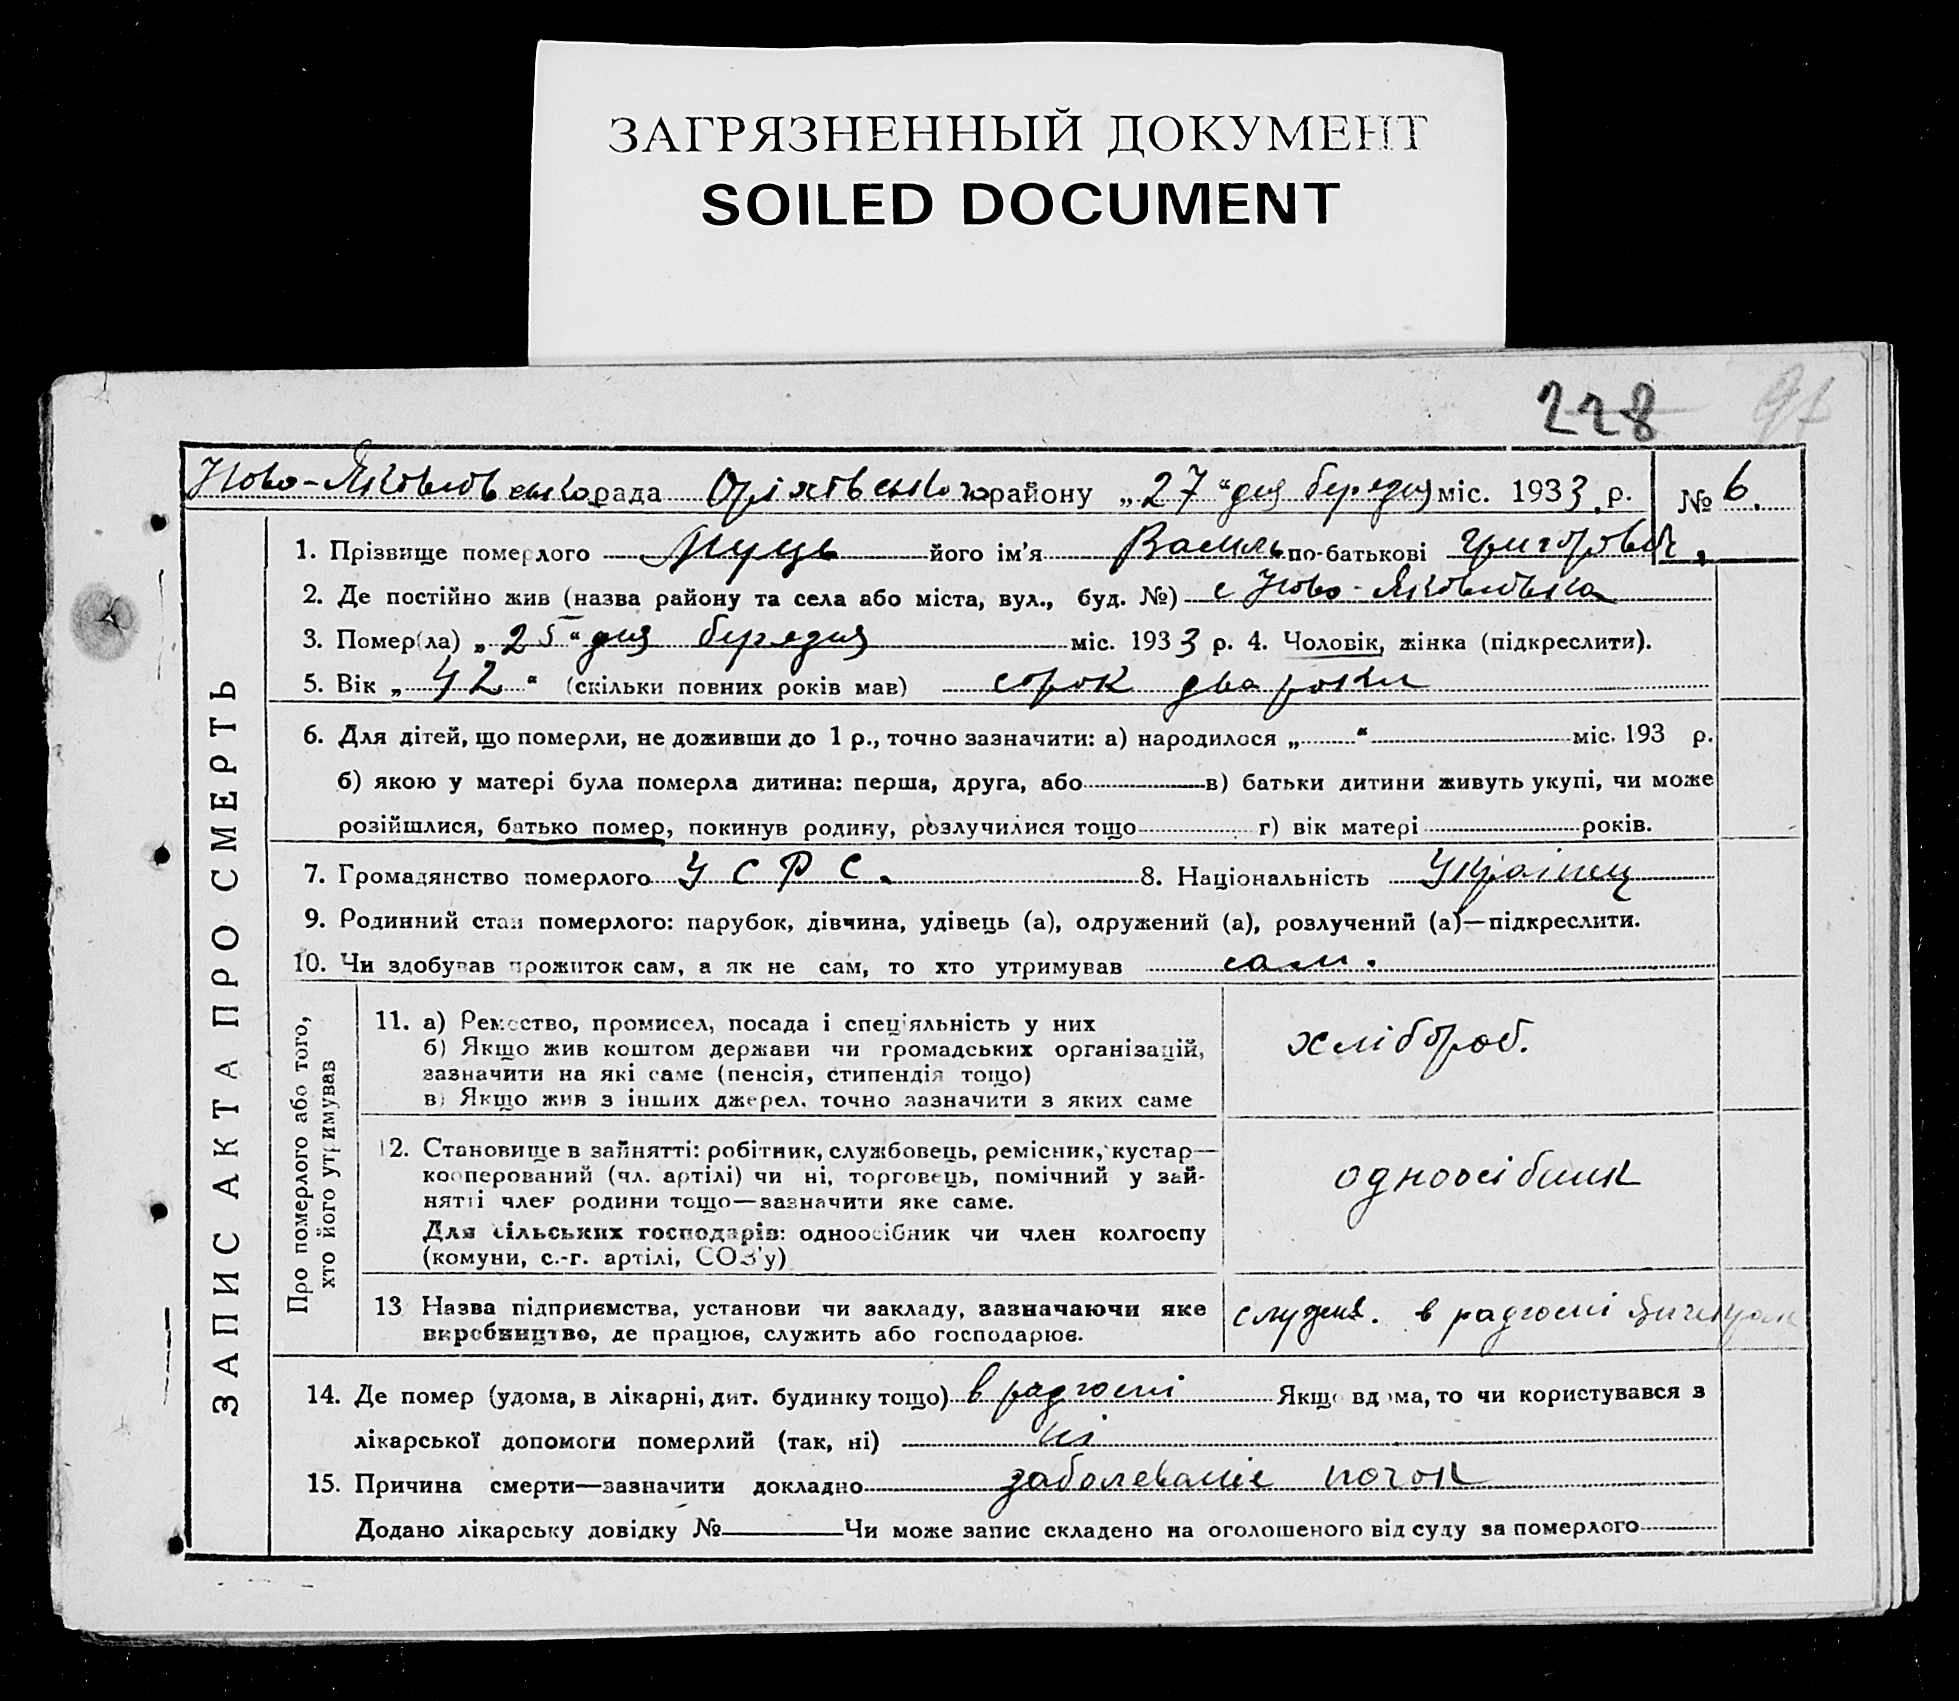 ЗАГРЯЗНЕННЫЙ ДОКУМЕНТ
SOILED DOCUMENT
228
Ново-Яковлівська рада Оріхівського району „27“ дня березня міс. 1933 р. № 6.
ЗАПИС АКТА ПРО СМЕРТЬ
1. Прізвище померлого Пуць його ім'я Василь по-батькові Григоровіч
2. Де постійно жив (назва району та села або міста, вул., буд. №) с Ново-Яковлівка
3. Помер(ла) „25“ дня березня міс. 1933 р. 4. Чоловік, жінка (підкреслити).
5. Вік „42“ (скільки повних років мав) сорок два роки
6. Для дітей, що померли, не доживши до 1 р., точно зазначити: а) народилося „ “ міс. 193 р.
б) якою у матері була померла дитина: перша, друга, або в) батьки дитини живуть укупі, чи може
розійшлися, батько помер, покинув родину, розлучилися тощо г) вік матері років.
7. Громадянство померлого У С Р С. 8. Національність Українец
9. Родинний стан померлого: парубок, дівчина, удівець (а), одружений (а), розлучений (а)—підкреслити.
10. Чи здобував прожиток сам, а як не сам, то хто утримував сам.
Про померлого або того,
хто його утримував
11. а) Ремество, промисел, посада і спеціяльність у них
б) Якщо жив коштом держави чи громадських організацій,
зазначити на які саме (пенсія, стипендія тощо)
в) Якщо жив з інших джерел, точно зазначити з яких саме
хлібороб.
12. Становище в зайнятті: робітник, службовець, ремісник, кустар—
кооперований (чл. артілі) чи ні, торговець, помічний у зай-
нятті член родини тощо—зазначити яке саме.
Для сільських господарів: одноосібник чи член колгоспу
(комуни, с.-г. артілі, СОЗ'у)
одноосібник
13 Назва підприємства, установи чи закладу, зазначаючи яке
виробництво, де працює, служить або господарює.
в радгоспі
14. Де помер (удома, в лікарні, дит. будинку тощо) в радгоспі Якщо вдома, то чи користувався з
лікарської допомоги померлий (так, ні) ні
15. Причина смерти—зазначити докладно заболеваніе почок
Додано лікарську довідку № Чи може запис складено на оголошеного від суду за померлого